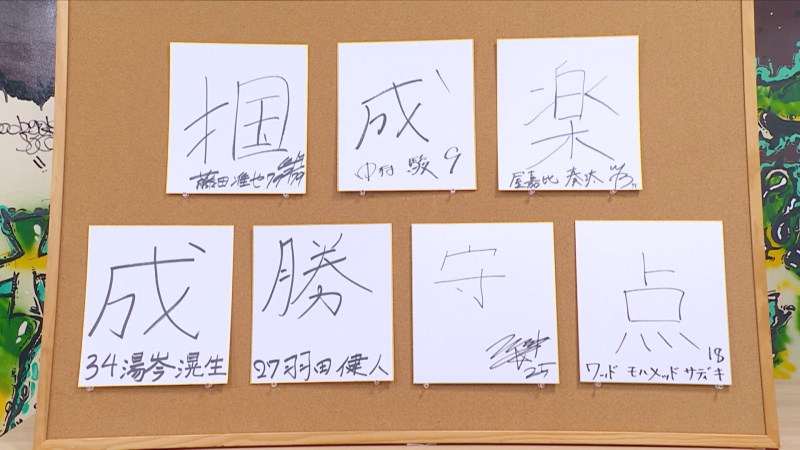 掴
藤田雄也
成
中村駿 9
楽
屋嘉比泰汰
成
34 湯岑滉生
勝
27 羽田健人
守
25
点
18
ワッド モハメッド サディキ